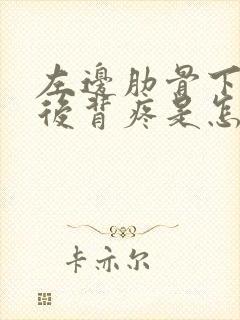 左邊肋骨下
後背疼是怎
卡亦尔